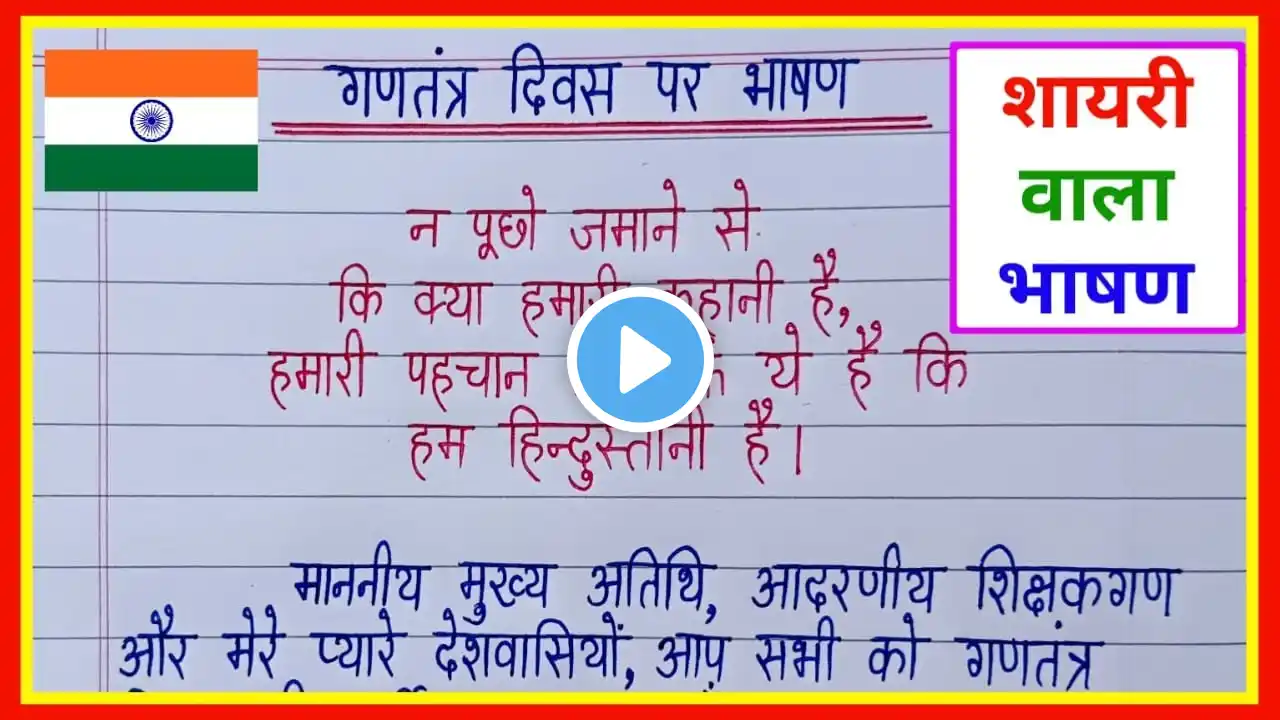 गणतंत्र दिवस पर भाषण
शायरी
वाला
भाषण
न पूछो जमाने से
कि क्या हमारी कहानी है,
हमारी पहचान ये है कि
हम हिन्दुस्तानी है।
माननीय मुख्य अतिथि, आदरणीय शिक्षकगण
और मेरे प्यारे देशवासियों, आप सभी को गणतंत्र